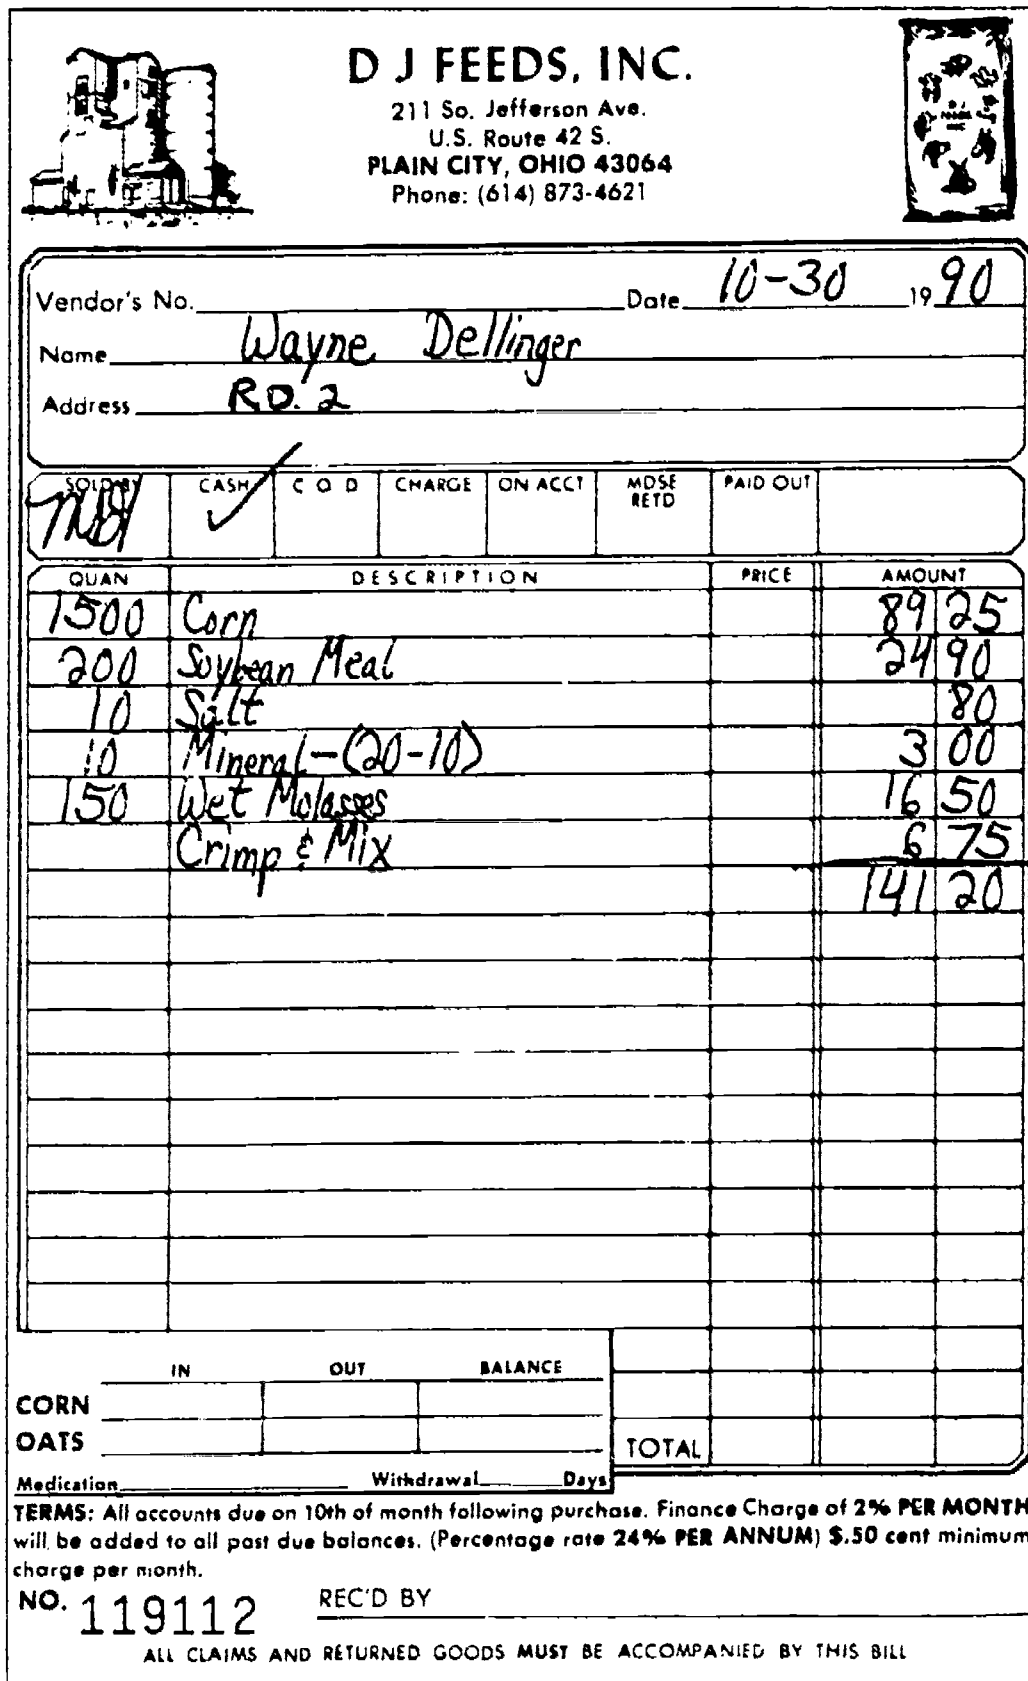 D J FEEDS, INC.
211 So. Jefferson Ave.
U.S. Route 42 S.
PLAIN CITY, OHIO 43064
Phone: (614) 873-4621
Vendor's No. Date 10-30 19 90
Name Wayne Dellinger
Address R.D. 2
SOLD BY CASH ✓ C O D CHARGE ON ACCT MDSE RETD PAID OUT
QUAN DESCRIPTION PRICE AMOUNT
1500 Corn 89 25
200 Soybean Meal 24 90
10 Salt 80
10 Mineral-(20-10) 3 00
150 Wet Molasses 16 50
Crimp & Mix 6 75
141 20
IN OUT BALANCE
CORN
OATS
TOTAL
Medication Withdrawal Days
TERMS: All accounts due on 10th of month following purchase. Finance Charge of 2% PER MONTH
will be added to all past due balances. (Percentage rate 24% PER ANNUM) $.50 cent minimum
charge per month.
NO. 119112 REC'D BY
ALL CLAIMS AND RETURNED GOODS MUST BE ACCOMPANIED BY THIS BILL